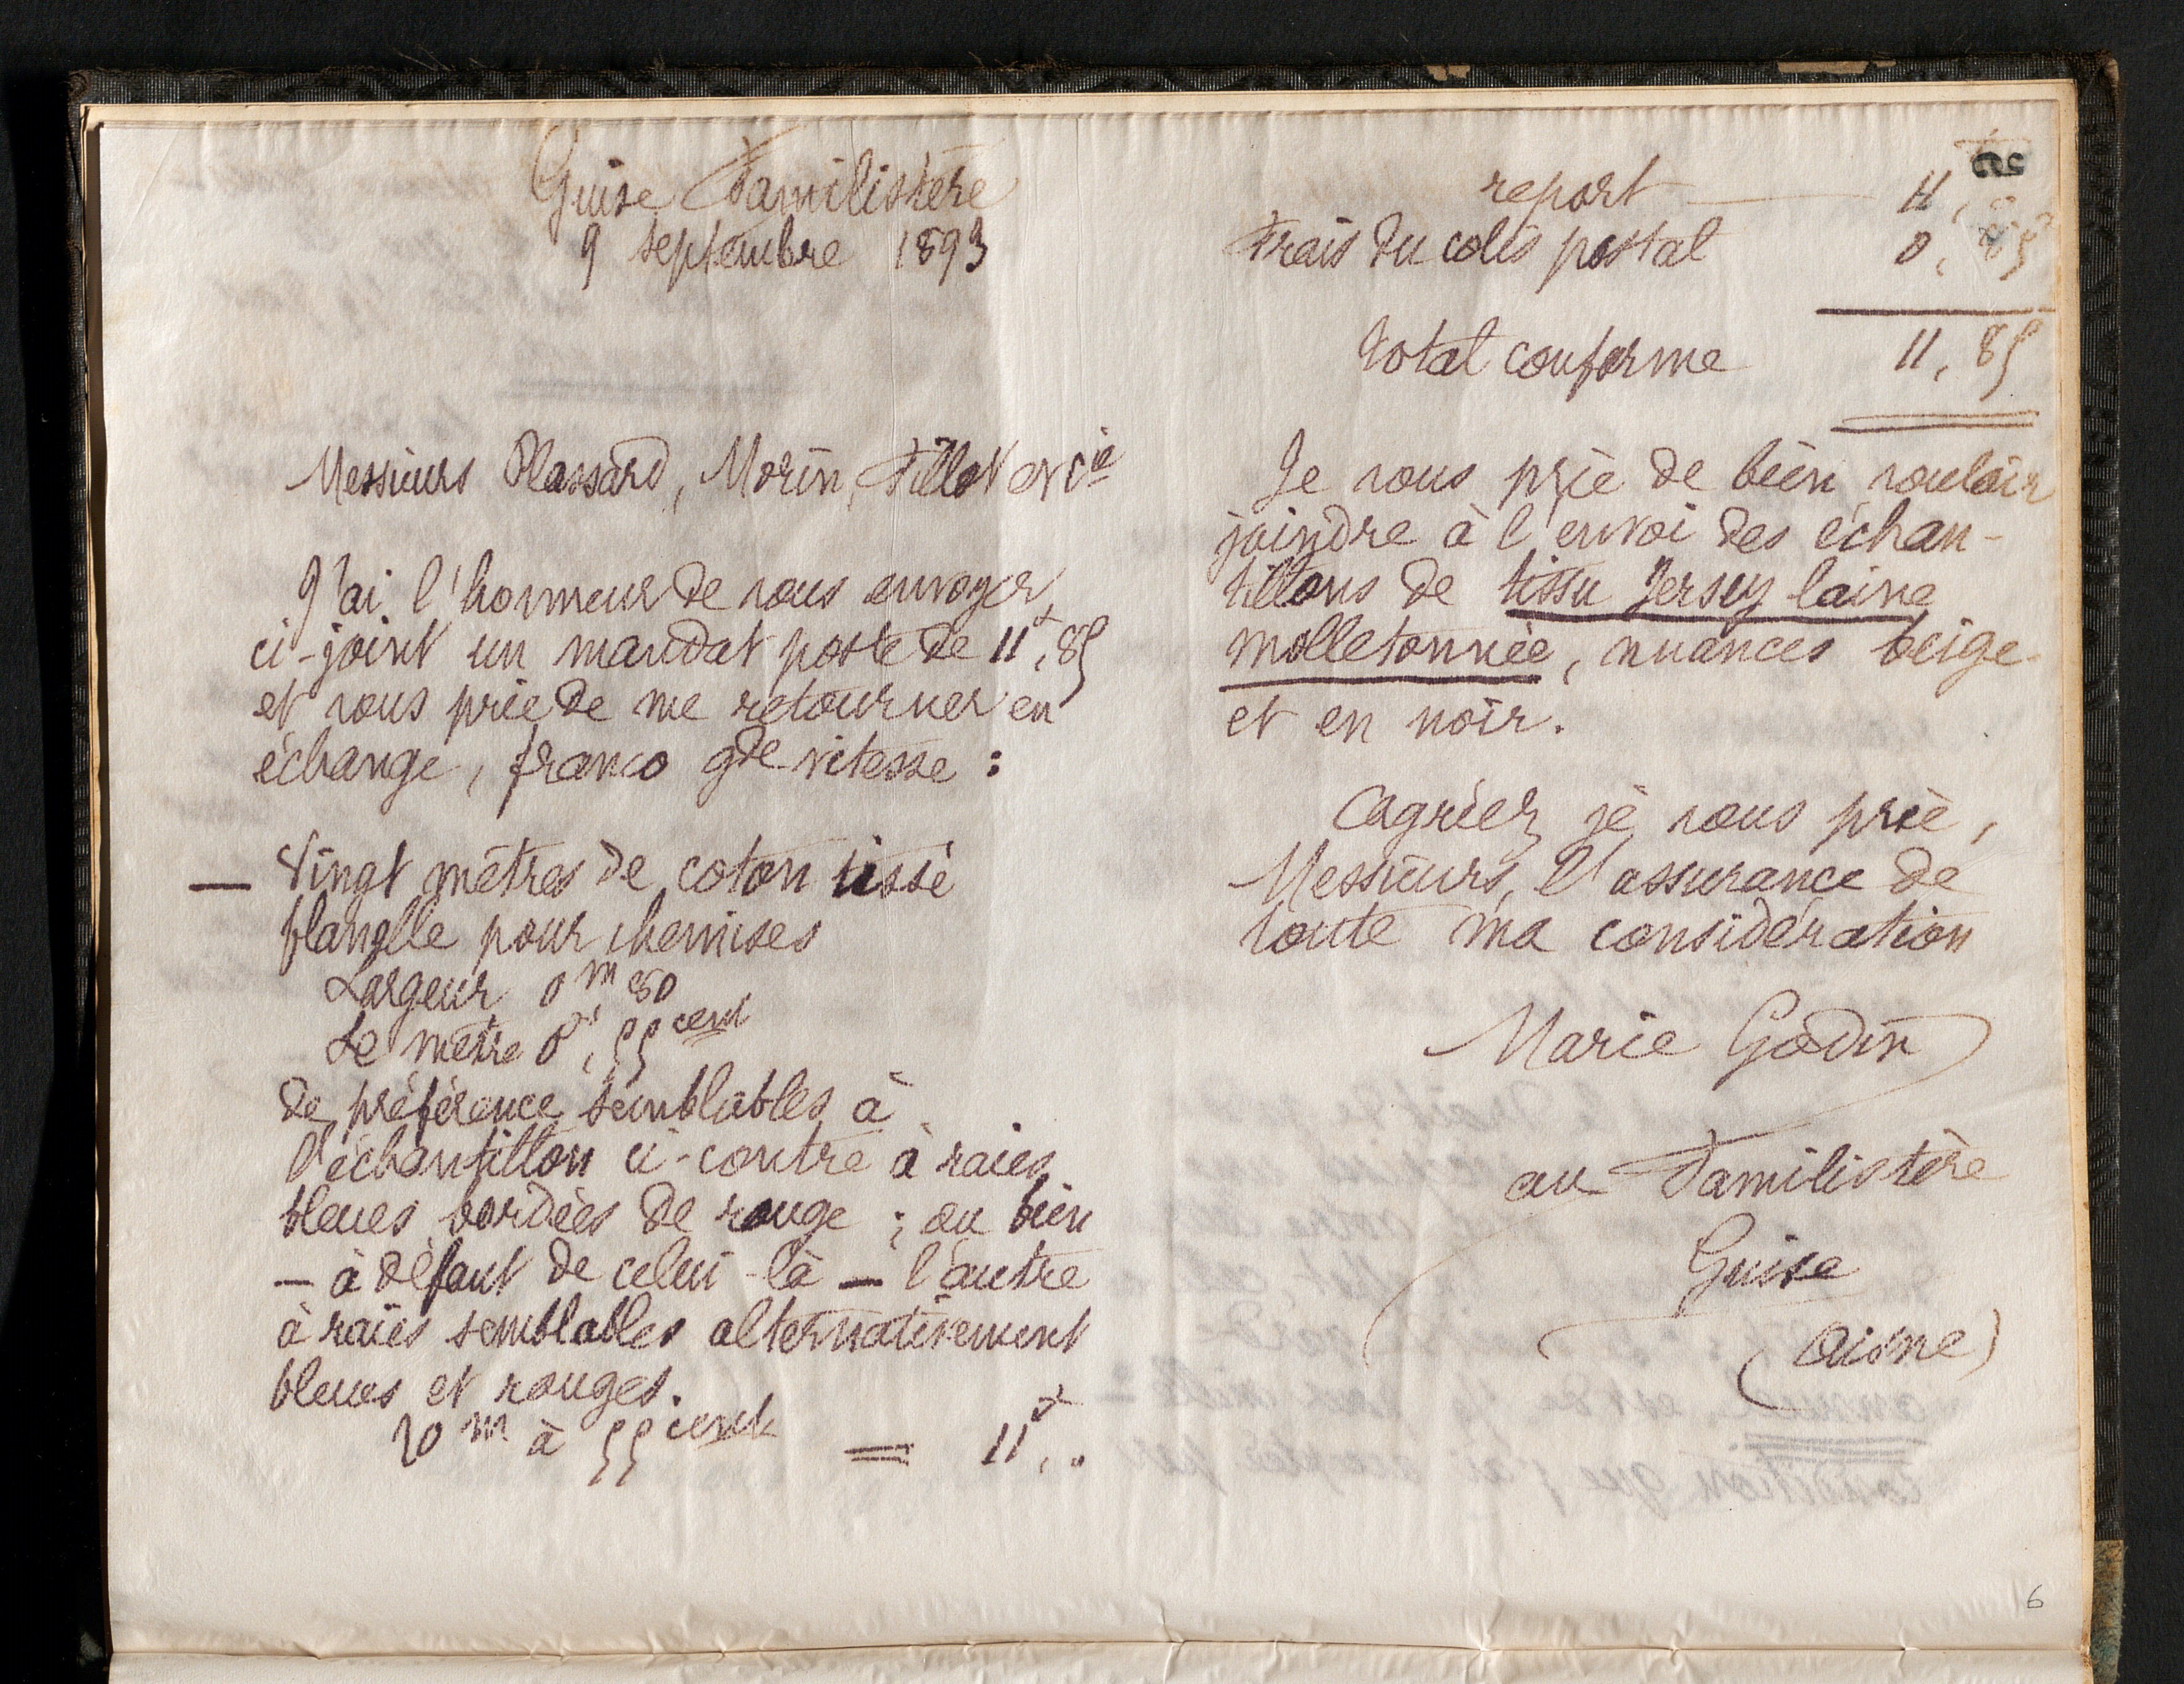 Guise Familistère
9 septembre 1893
Messieurs Plassard, Morin, Fillot et Cie
J'ai l'honneur de vous envoyer
ci-joint un mandat poste de 11f,85
et vous prie de me retourner en
échange, franco gde vitesse :
— Vingt mètres de coton tissé
flanelle pour chemises
Largeur 0m,80
Le mètre 0f,55cent
de préférence semblables à
l'échantillon ci-contre à raies
bleues bordées de rouge ; ou bien
— à défaut de celui-là — l'autre
à raies semblables alternativement
bleues et rouges.
20m à 55cent = 11f,..
report 11, ..
Frais du colis postal 0,85
total conforme 11,85
Je vous prie de bien vouloir
joindre à l'envoi des échan-
tillons de tissu Jersey laine
molletonnée, nuances beige
et en noir.
Agréez, je vous prie,
Messieurs, l'assurance de
toute ma considération
Marie Godin
au Familistère
Guise
(Aisne)
6